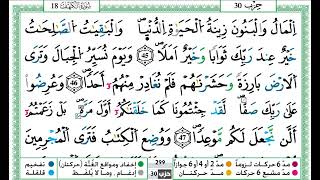 حِزْب 30
سُورَةُ الْكَهْفِ 18
اِ۬لْمَالُ وَالْبَنُونَ زِينَةُ الْحَيَوٰةِ الدُّنْيَا وَالْبَٰقِيَٰتُ الصَّٰلِحَٰتُ
خَيْرٌ عِندَ رَبِّكَ ثَوَابًا وَخَيْرٌ أَمَلًا 45 وَيَوْمَ نُسَيِّرُ الْجِبَالَ وَتَرَى
الْأَرْضَ بَارِزَةً وَحَشَرْنَٰهُمْ فَلَمْ نُغَادِرْ مِنْهُمُۥ أَحَدًا 46 وَعُرِضُوا
عَلَىٰ رَبِّكَ صَفًّا لَّقَدْ جِئْتُمُونَا كَمَا خَلَقْنَٰكُمُۥ أَوَّلَ مَرَّةٍ بَلْ زَعَمْتُمُۥ
أَلَّن نَّجْعَلَ لَكُم مَّوْعِدًا 47 وَوُضِعَ الْكِتَٰبُ فَتَرَى الْمُجْرِمِينَ
مدّ 6 حركات لزوماً مدّ 2 أو 4 أو 6 جوازاً 299 إخفاء ومواقع الغنّة (حركتان) تفخيم
مدّ مشبع 6 حركات مدّ حركتان حزب 30 إدغام، وما لا يُلفظ قلقلة